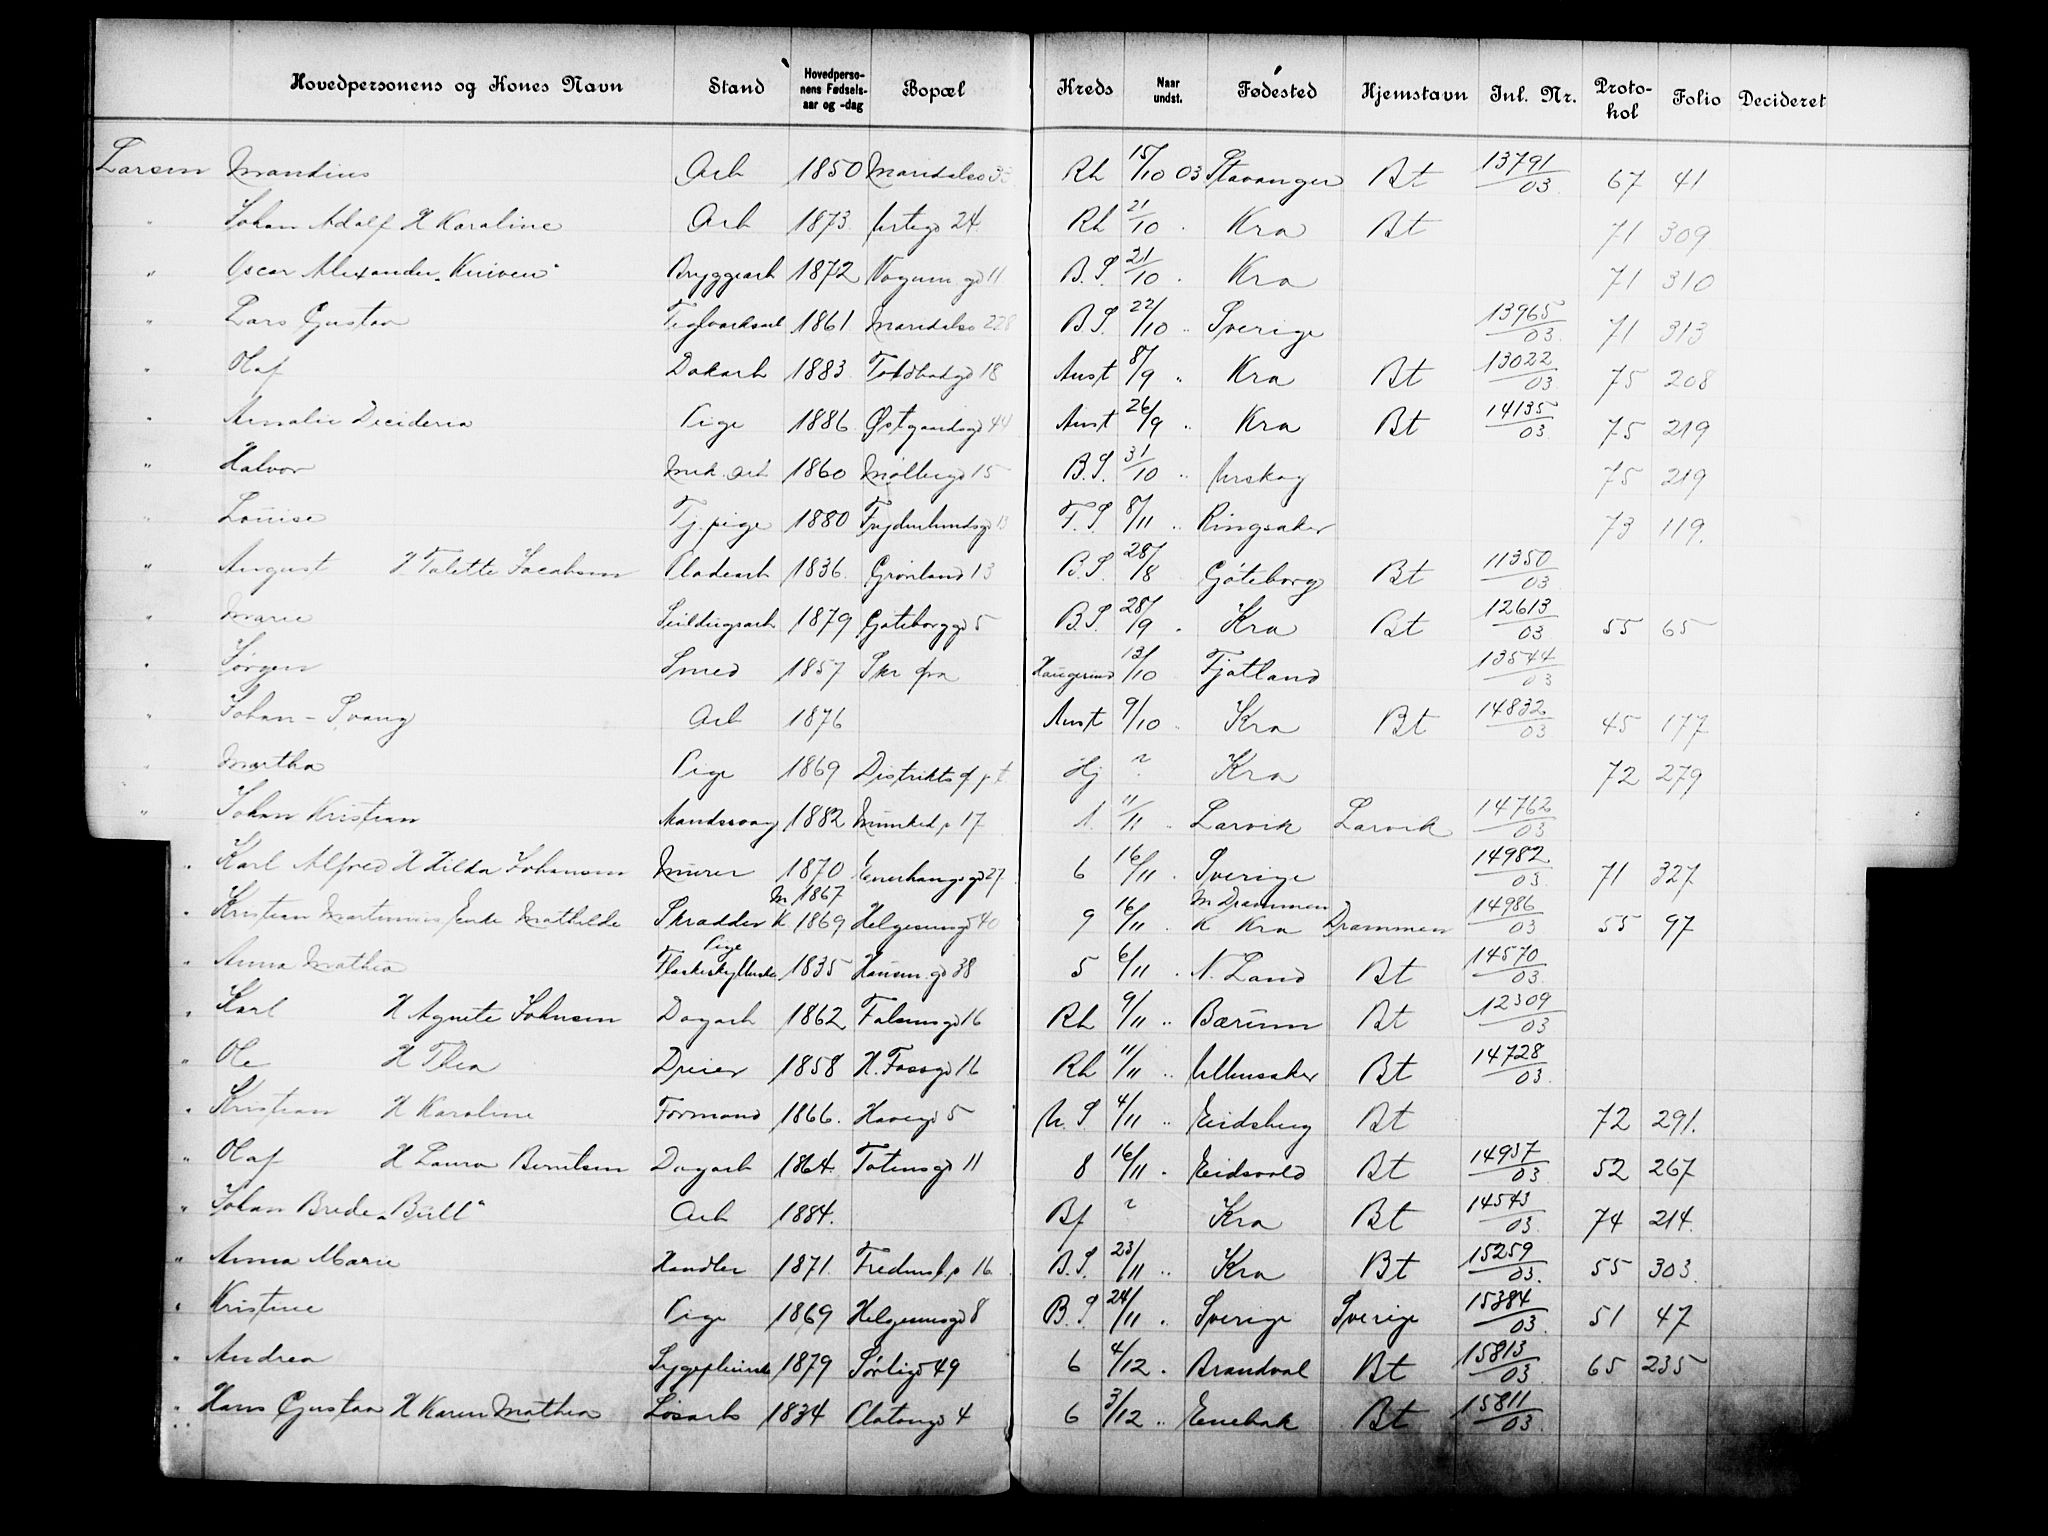 Hovedpersonens og Kones Navn Stand Hovedperso-nens Fødsels-aar og -dag Bopæl Kreds Naar undst. Fødested Hjemstavn Inl. Nr. Proto-kol Folio Decideret
Larsen Mandius Arb 1850 Maridalsv 33 Rh 15/10 03 Stavanger Bt 13791/03 67 41
" Johan Adolf H Karoline Arb 1873 24 Rh 21/10 " Kra Bt 71 309
" Oscar Alexander „Kniven" Bryggearb 1872 Vognm gd 11 B.S. 21/10 " Kra 71 310
" Lars Gustav Teglverksarb 1861 Maridalsv 228 B.S. 22/10 " Sverige 13965/03 71 313
" Olaf Dokarb 1883 Toldbodgd 18 Aust 8/9 " Kra Bt 13022/03 75 208
" Amalie Decideria Pige 1886 Østgaardsgd 44 Aust 26/9 " Kra Bt 14135/03 75 219
" Halvor Mek. Arb 1860 Møllergd 15 B.S. 31/10 " Urskog 75 219
" Louise Tj. pige 1880 Frydenlundsgd 13 F.S 8/11 " Ringsaker 73 119.
" August H Talette Jacobsen Pladearb 1836. Grønland 13 B.S. 28/8 Göteborg Bt 11350/03
" Marie Sildugsarb 1879 Gøteborggd 5 B.S. 28/9 " Kra Bt 12613/03 55 65
" Jørgen Smed 1857 Skr fra Haugerund 13/10 Fjotland 13544/03
" Johan - Svang Arb 1876 Aust 9/10 " Kra Bt 14832/03 45 177
" Martha Pige 1869 Distriktsf p t Hj ? Kra 72 279
" Johan Kristian Mandssang 1882 Munked p 17 1. 11/11 " Larvik Larvik 14762/03
" Karl Alfred H Hilda Johansen Murer 1870 Enerhaugsgd 27 6 16/11 " Sverige 14982/03 71 327
" Kristian Martinius Enke Mathilde Skrædder M 1867 K. 1869 Helgesensgd 40 9 16/11 " M Drammen K Kra Drammen 14986/03 55 97
" Anna Mathea Pige Flaskeskyllerske 1835 Hausm. gd 38 5 6/11 " N. Land Bt 14570/03
" Karl H Agnete Johnsen Dagarb 1862 Falsensgd 16 Rh 9/11 " Bærum Bt 12309/03
" Ole H Thea Dreier 1858 H. Fossgd 16 Rh 11/11 " Ullensaker Bt 14728/03
" Kristian H Karoline Formand 1866. Havegd 5 U.S 4/11 " Eidsberg Bt 72 291.
" Olaf H Laura Berntsen Dagarb 1864. Totensgd 11 8 16/11 " Eidsvold Bt 14937/03 52 267
" Johan Brede „Bull" Arb 1884. Bf ? Kra Bt 14543/03 74 214.
" Anna Marie Handler 1871. Fredensb p 16 B.S. 23/11 " Kra Bt 15259/03. 55 303.
" Kristine Pige 1869 Helgesensgd 8 B.S 24/11 " Sverige Sverige 15384/03. 51 47
" Andrea Sygepleierske 1879 Sørligd 49 6 4/12 " Brandval Bt 15813/03. 65 235
" Hans Gustav H Karen Mathea Løsarb 1834 Platougd 4 6 3/12 " Enebak Bt 15811/03.